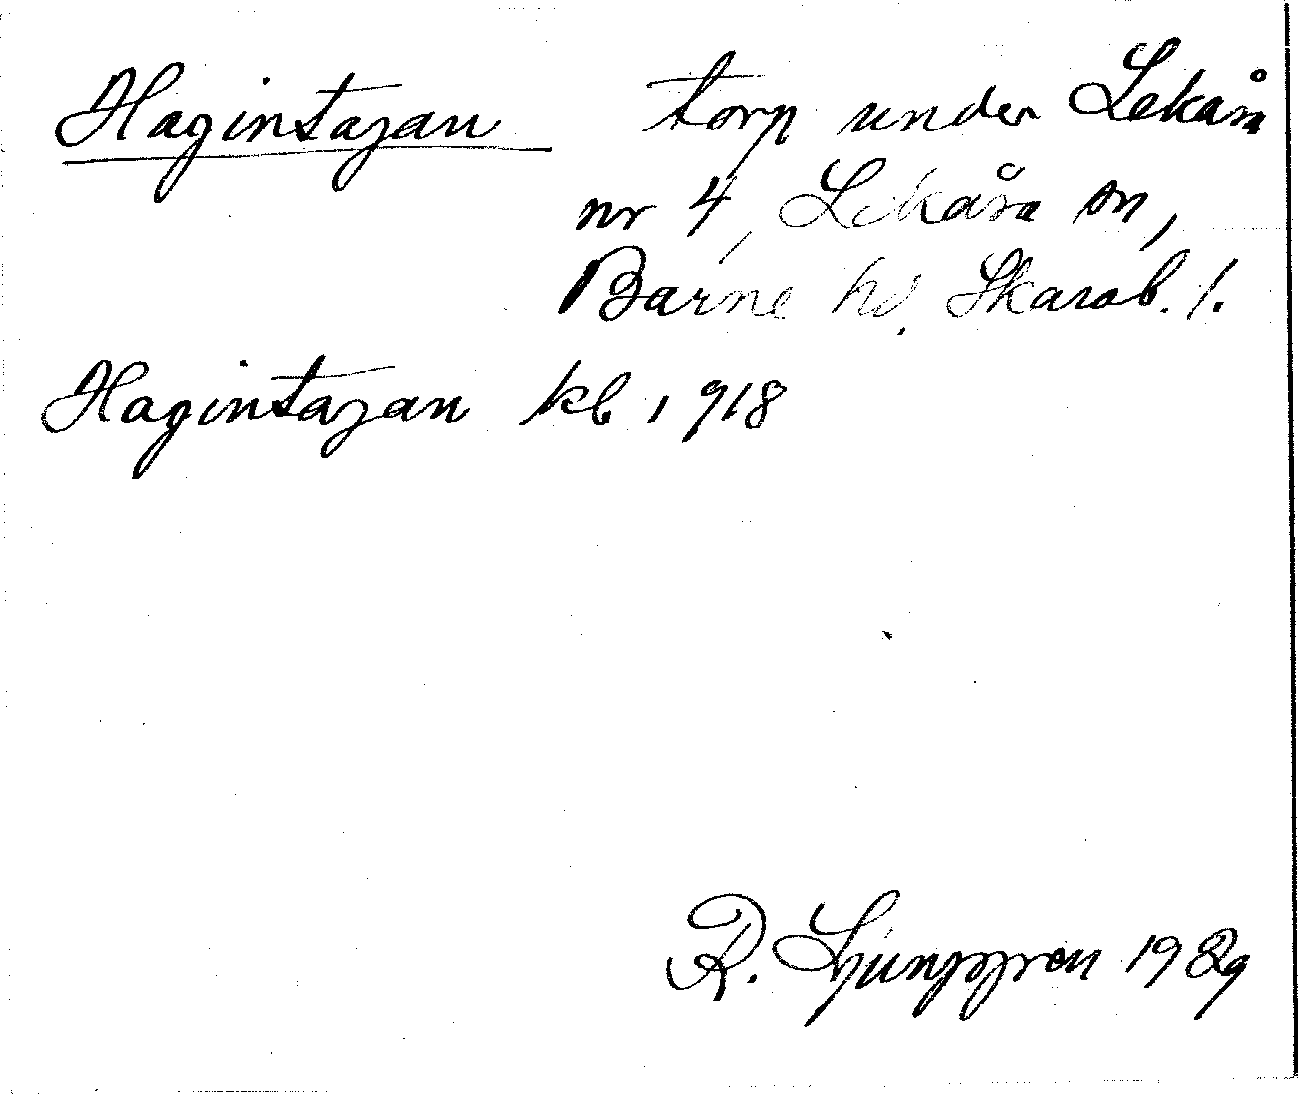 Hagintagan torp under Lekåsa
nr 4, Lekåsa sn,
Barne hd. Skarab. l.
Hagintagan kb 1918
R. Ljunggren 1929